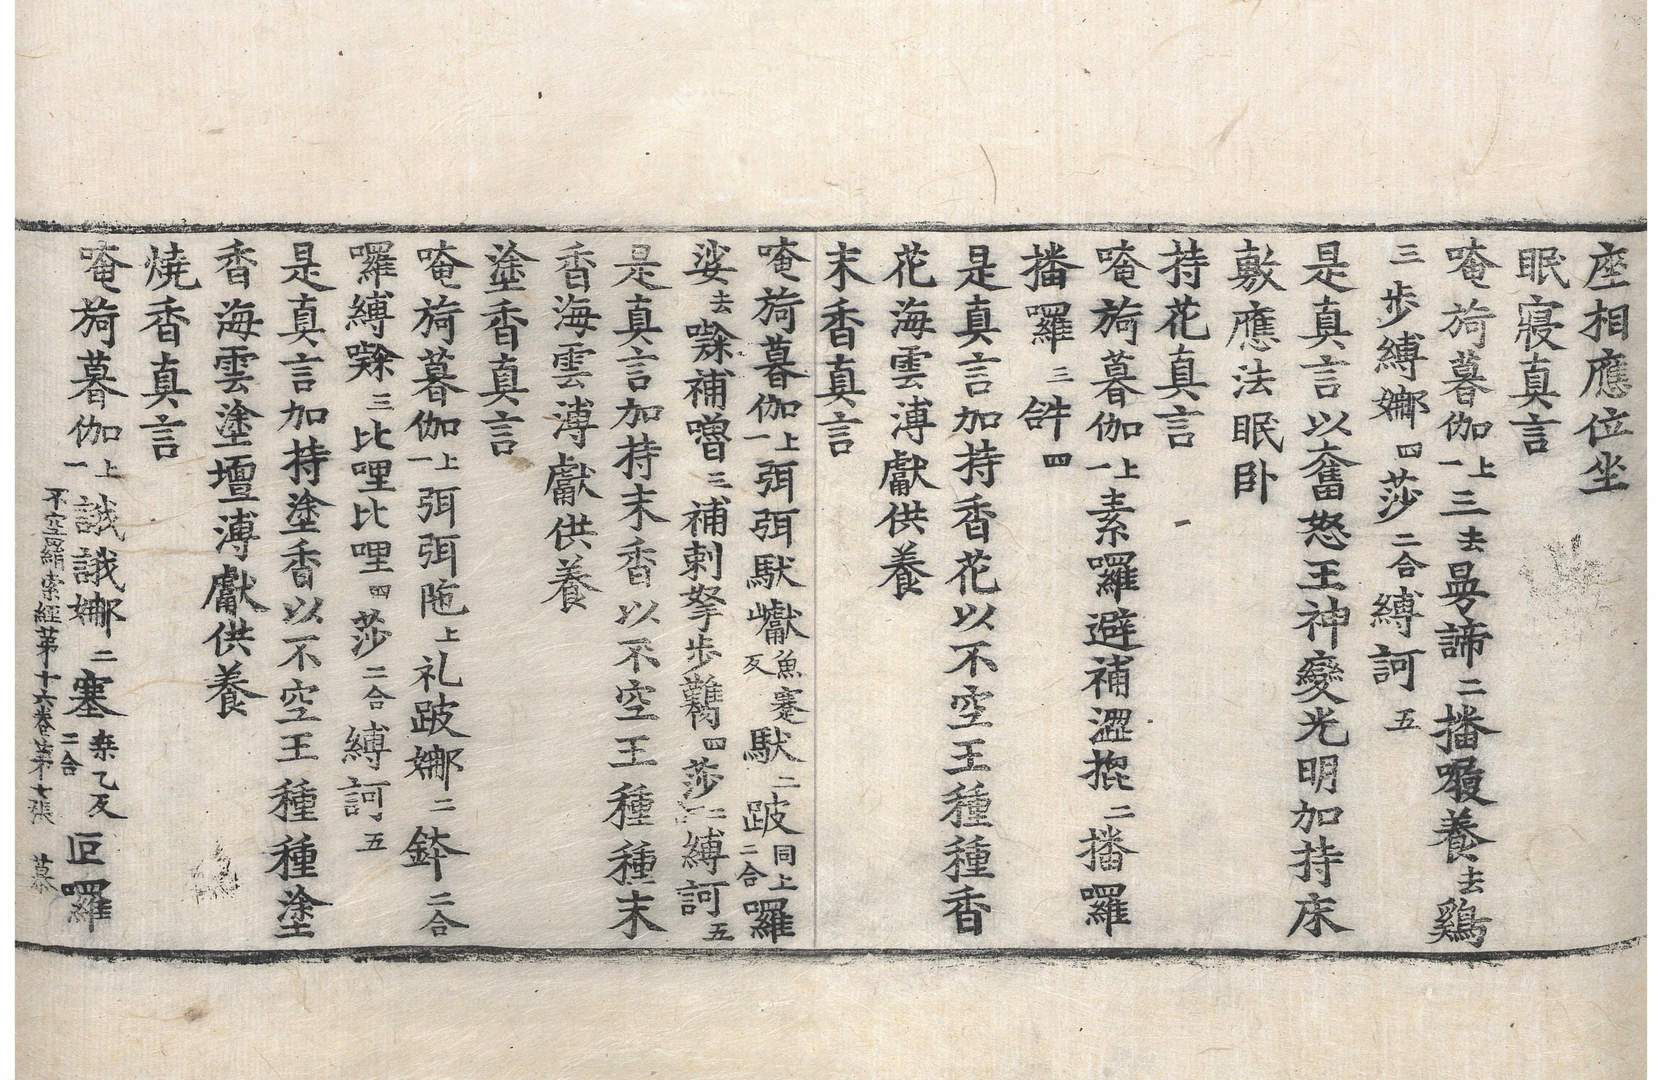 座相應位坐
眠寢真言
唵旖暮伽上一三去曇諦二播囉養去鷄
三步縛娜四莎二合縛訶五
是真言以奮怒王神變光明加持床
敷應法眠卧
持花真言
唵旖暮伽上一素囉避補澀㧾二播囉
播囉三𤙖四
是真言加持香花以不空王種種香
花海雲溥獻供養
末香真言
唵旖暮伽上一弭弭馱𡾼魚蹇反馱二跛同上二合囉
娑去㘑補嚕三補刺拏步𩜁四莎二合縛訶五
是真言加持末香以不空王種種末
香海雲溥獻供養
塗香真言
唵旖暮伽上一弭弭陁上礼跛娜二鉢二合
囉縛㘑三比哩比哩四莎二合縛訶五
是真言加持塗香以不空王種種塗
香海雲塗壇溥獻供養
燒香真言
唵旖暮伽上一誐誐娜二塞桒乙反二合叵囉
不空羂索經第十六卷第七張 慕